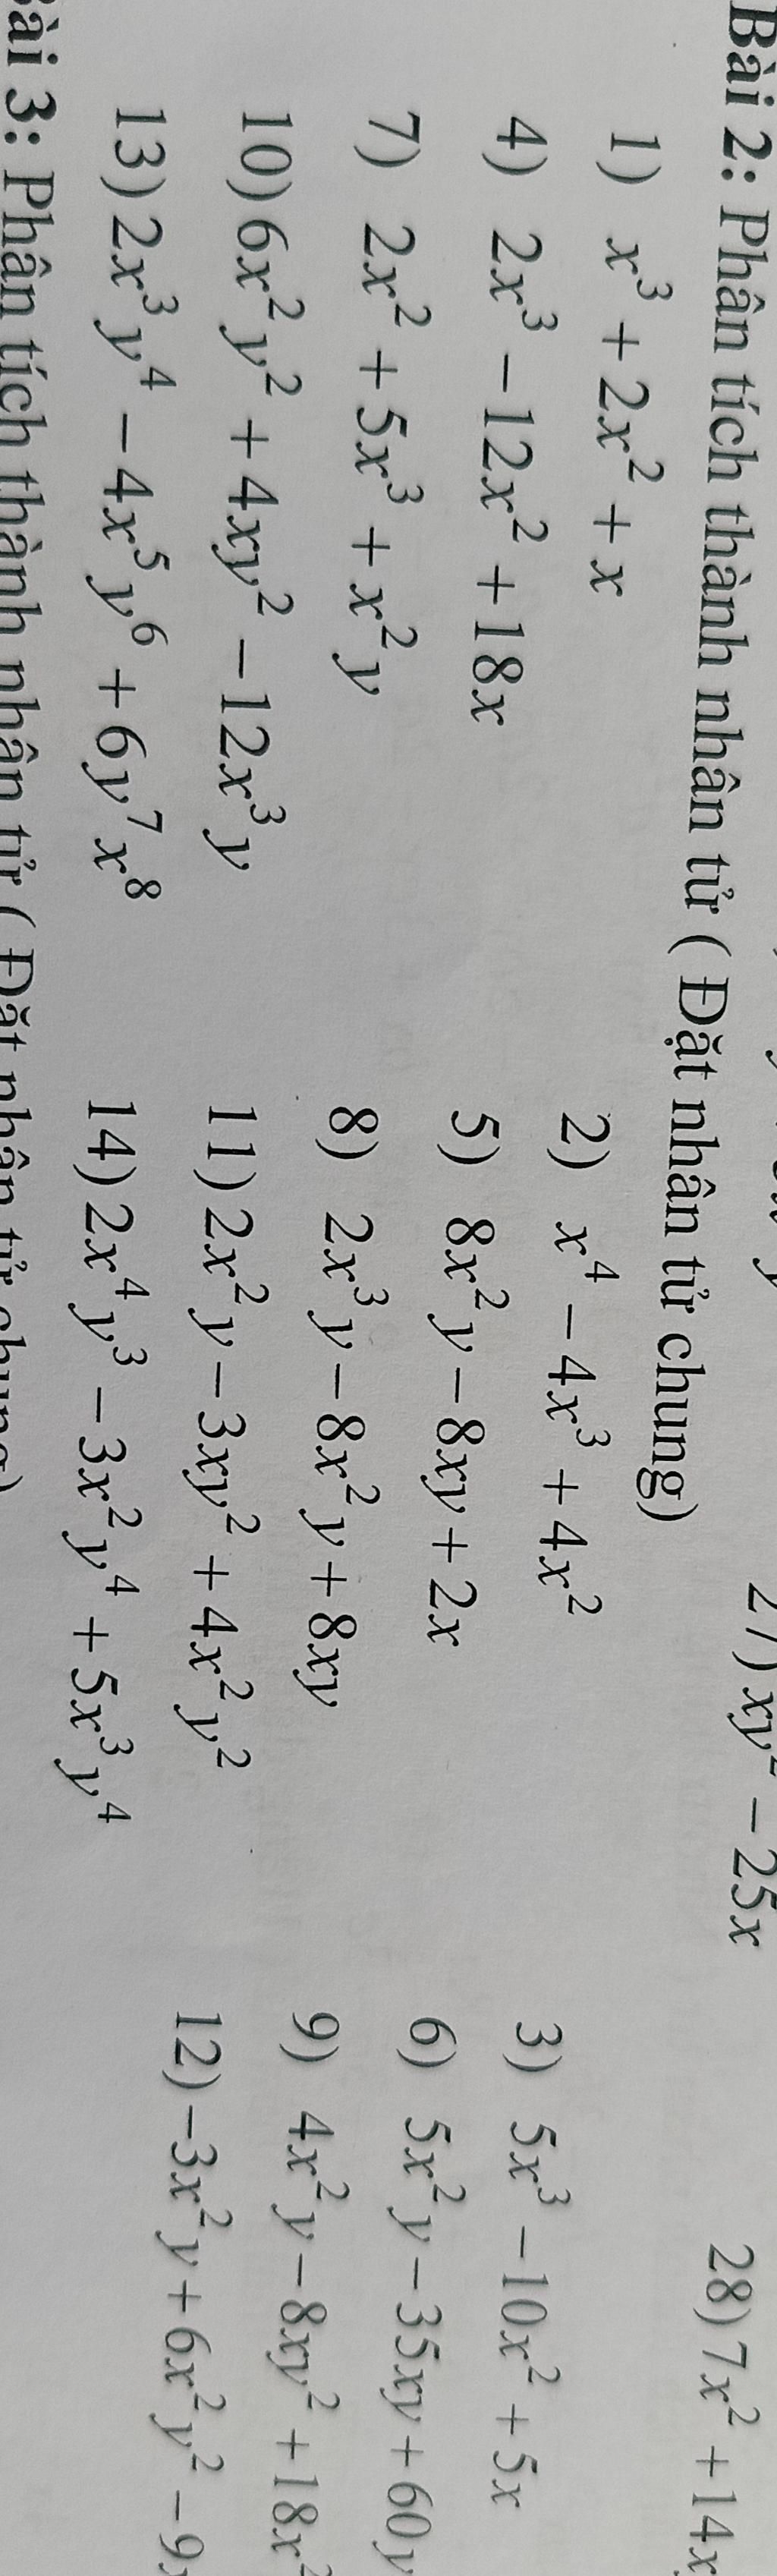 27) xy² − 25x 28) 7x² + 14x
Bài 2: Phân tích thành nhân tử ( Đặt nhân tử chung)
1) x³ + 2x² + x 2) x⁴ − 4x³ + 4x² 3) 5x³ − 10x² + 5x
4) 2x³ − 12x² + 18x 5) 8x²y − 8xy + 2x 6) 5x²y − 35xy + 60y
7) 2x² + 5x³ + x²y 8) 2x³y − 8x²y + 8xy 9) 4x²y − 8xy² + 18x²
10) 6x²y² + 4xy² − 12x³y 11) 2x²y − 3xy² + 4x²y² 12) −3x²y + 6x²y² − 9
13) 2x³y⁴ − 4x⁵y⁶ + 6y⁷x⁸ 14) 2x⁴y³ − 3x²y⁴ + 5x³y⁴
ài 3: Phân tích thành nhân tử ( Đặt nhân tử chung)